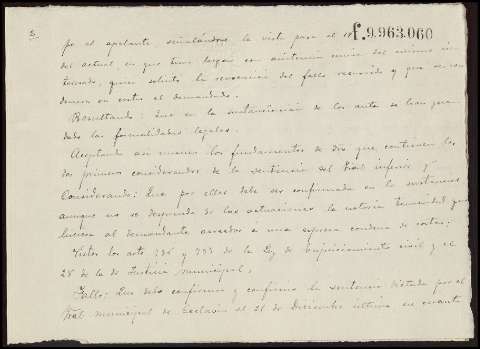 3
f.9.963.060
por el apelante señalándose la vista para el
del actual, en que tuvo lugar con asistencia del mismo
teresado, quien solicitó la revocación del fallo recurrido y que se con
denara en costas al demandado.
Resultando: Que en la sustanciacion de los autos se han guar
dado las formalidades legales.
Aceptando asi mismo los fundamentos de dro que contienen los
dos primeros considerandos de la sentencia del Tral inferior y
Considerando: Que por ellos debe ser confirmada en lo sustancial
aunque no se desprenda de las actuaciones la notoria temeridad que
hiciera al demandante acreedor a una expresa condena de costas;
Vistos los artos 736 y 733 de la Ley de Enjuiciamiento civil y el
28 de la de Justicia municipal,
Fallo: Que debo confirmar y confirmo la sentencia dictada por el
Tral municipal de el 21 de Diciembre último en cuanto